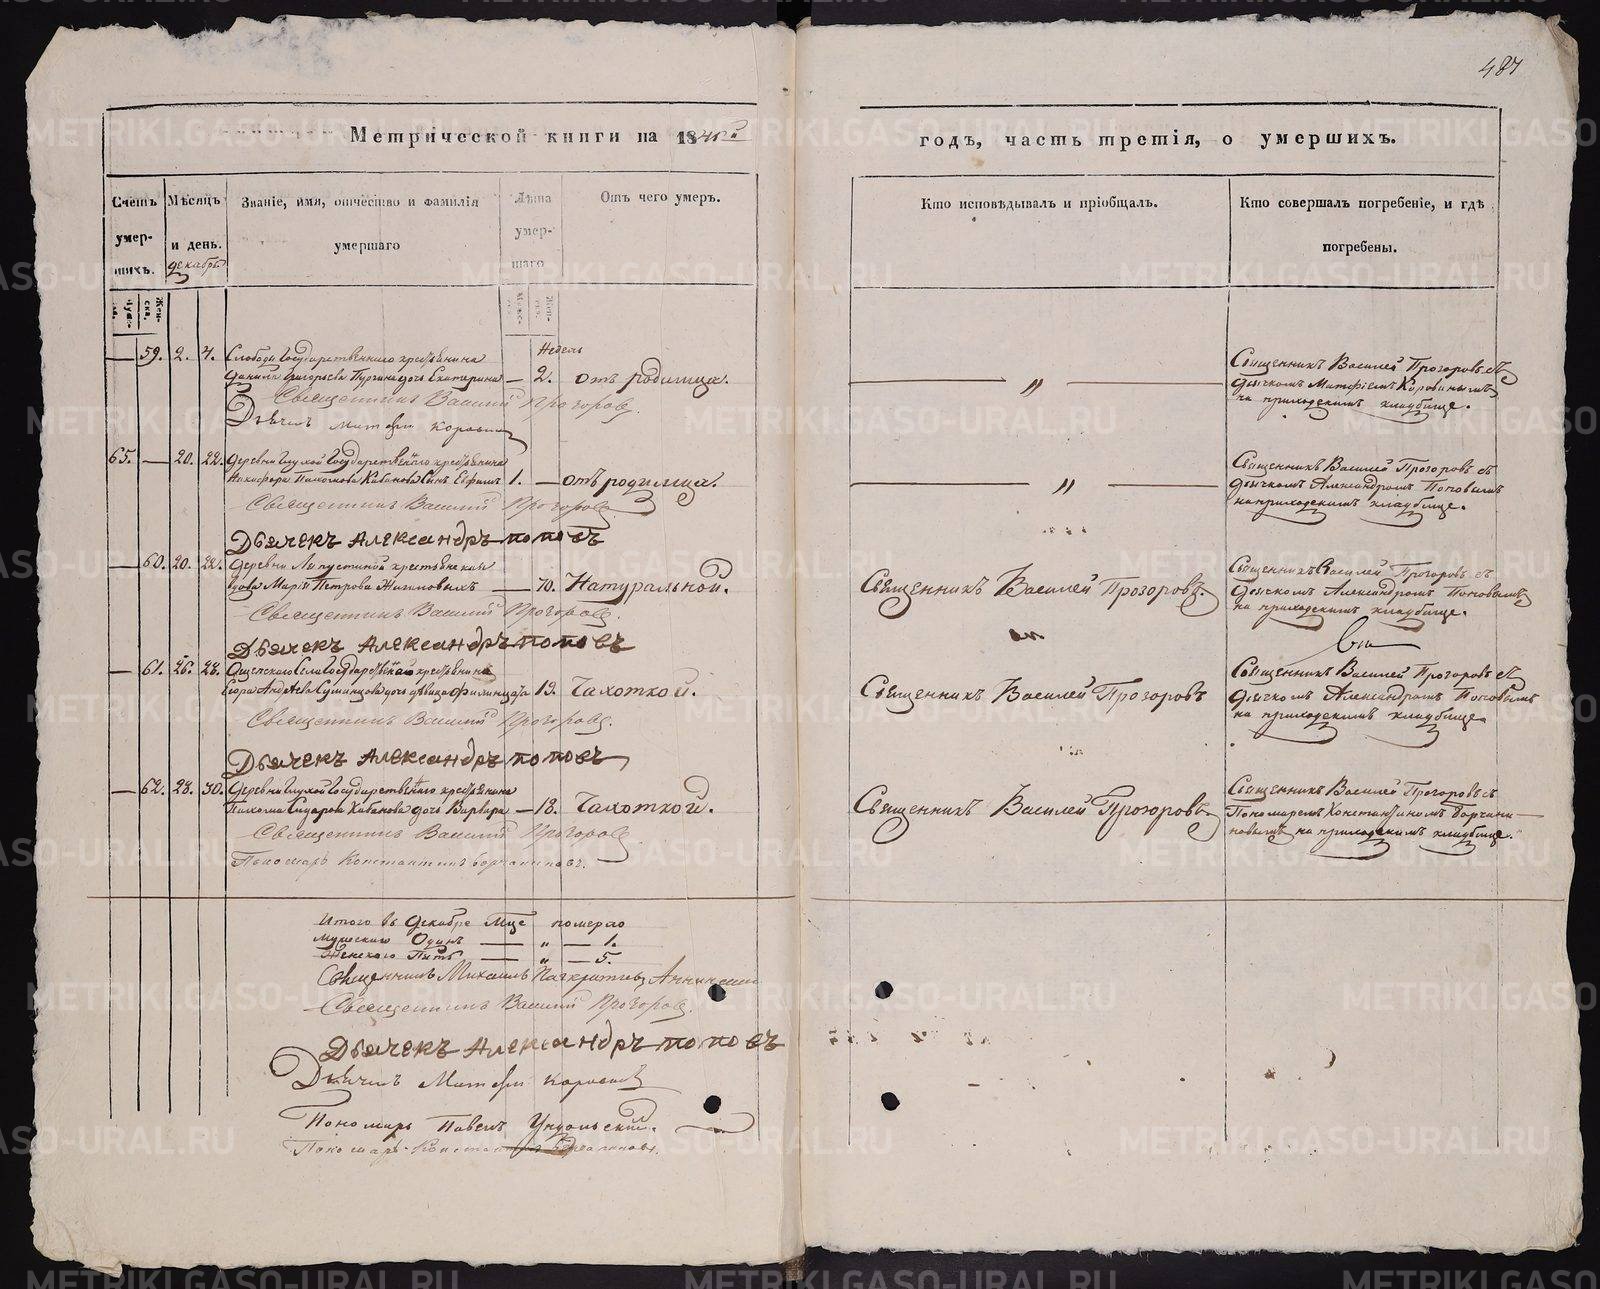 487
Метрической книги на 1845й
годъ, часть третія, о умершихъ.
Счетъ умер-шихъ.
Мѣсяцъ и день.
декабрь
Званіе, имя, отчество и фамилія умершаго
Лѣта умер-шаго
Отъ чего умеръ.
Кто исповѣдывалъ и пріобщалъ.
Кто совершалъ погребеніе, и гдѣ погребены.
Жен-ска.
— 59. 2. 4. Слободы Государственнаго крестьянина
Недель
Данила Григорьева дочь Екатерина — 2. отъ родимца.
Священникъ Василій Прозоровъ
Дьячекъ Матфей Коровинъ
— „ —
Священникъ Василей Прозоровъ съ
дьячкомъ Матфіемъ Коровинымъ
на приходскимъ кладбище.
65. — 20. 22. Деревни Глухой Государственнаго крестьянина
Никифора Кабакова Сынъ Евфимъ 1. — отъ родимца.
Священникъ Василій Прозоровъ
Дьячекъ Александръ Поповъ
— „ —
Священникъ Василей Прозоровъ съ
дьячкомъ Александромъ Поповымъ
на приходскимъ кладбище.
— 60. 20. 22. Деревни крестьянская
вдова Марія Петрова — 70. Натуральной.
Священникъ Василій Прозоровъ
Дьячекъ Александръ Поповъ
Священникъ Василей Прозоровъ.
Священникъ Василей Прозоровъ съ
дьячкомъ Александромъ Поповымъ
на приходскимъ кладбище.
— 61. 26. 28. Села Государственнаго крестьянина
Егора Андреева дочь девица 19. Чахоткой.
Священникъ Василій Прозоровъ.
Дьячекъ Александръ Поповъ
Священникъ Василей Прозоровъ
Священникъ Василей Прозоровъ съ
дьячкомъ Александромъ Поповымъ
на приходскимъ кладбище.
— 62. 28. 30. Деревни Глухой Государственнаго крестьянина
Сидорова Кабакова дочь Варвара — 18. Чахоткой.
Священникъ Василій Прозоровъ
Пономарь Константинъ Борчаниновъ.
Священникъ Василей Прозоровъ
Священникъ Василей Прозоровъ съ
Пономаремъ Константиномъ Борчани-
новымъ на приходскимъ кладбище.
Итого въ Декабре Мце померло
мужескаго Одинъ — „ — 1.
Женскаго Пять — „ — 5.
Священникъ Михаилъ
Священникъ Василій Прозоровъ.
Дьячекъ Александръ Поповъ
Дьячекъ Матфей Коровинъ
Пономарь Павелъ Ундольский.
Пономарь Константинъ Борчаниновъ.
METRIKI.GASO-URAL.RU